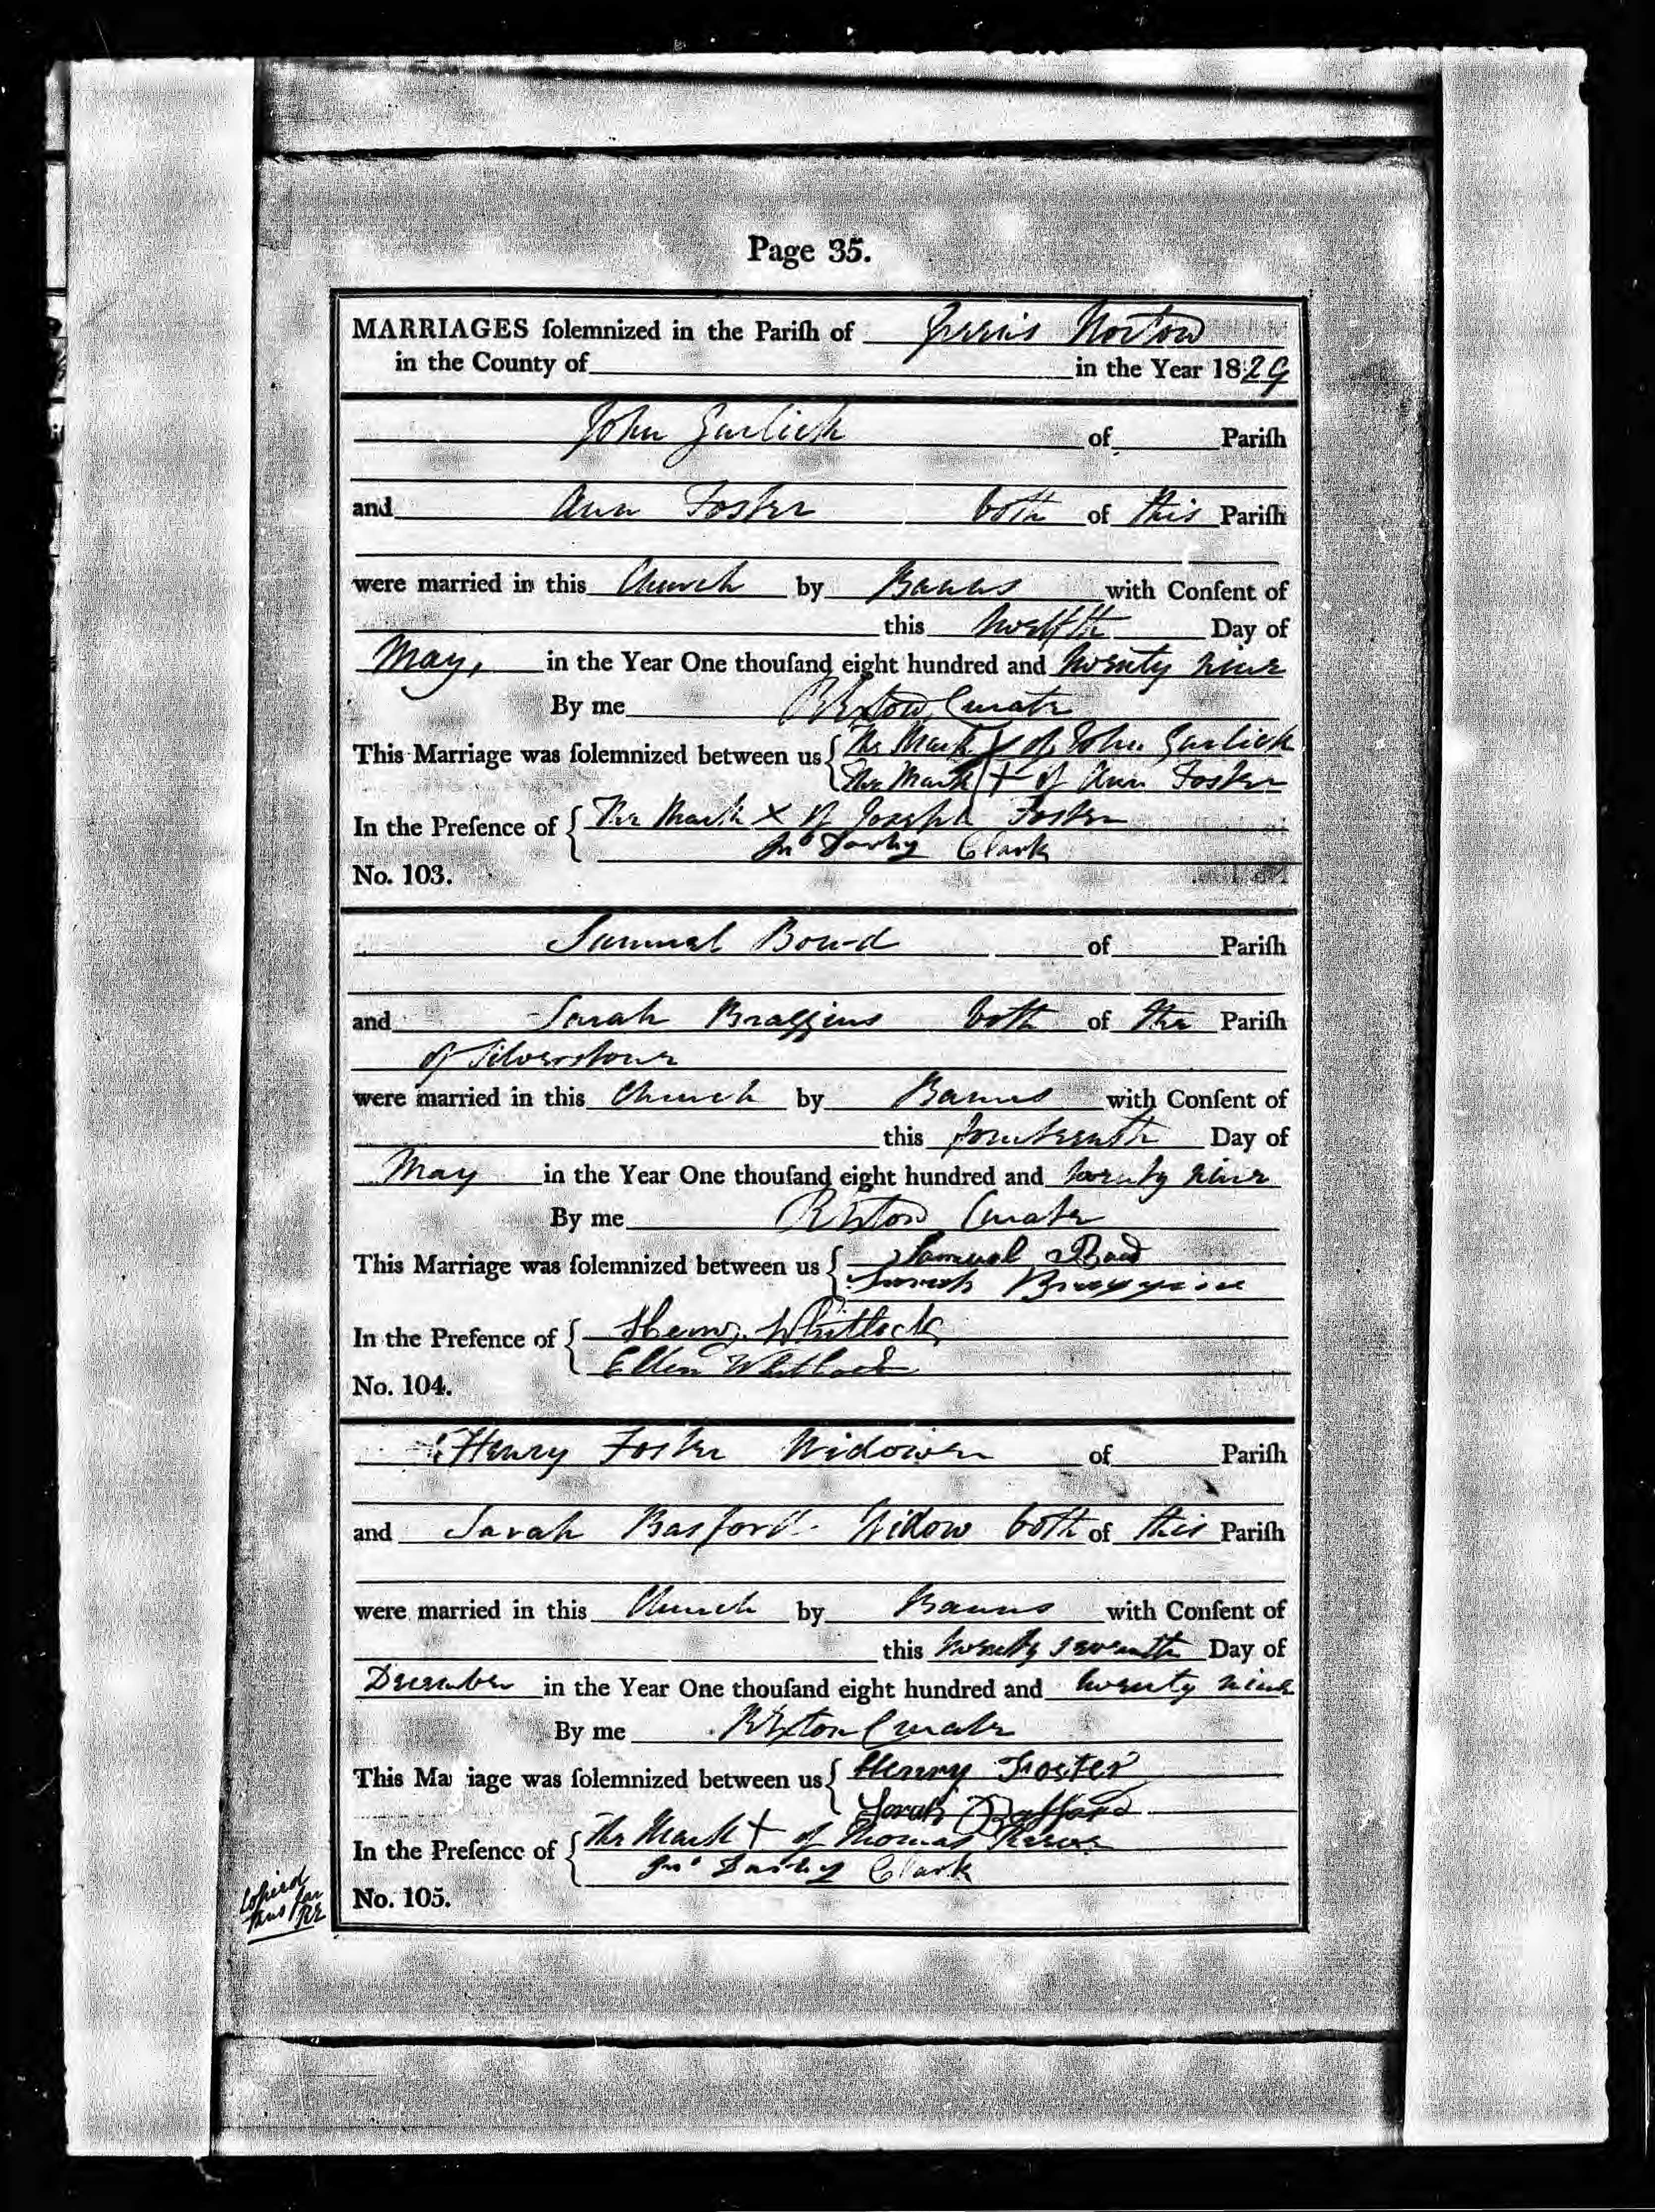 Page 35.
MARRIAGES ſolemnized in the Pariſh of Greens Norton
in the County of in the Year 1829
John Garlick of Pariſh
and Ann Foster both of this Pariſh
were married in this Church by Banns with Conſent of
this twelfth Day of
May, in the Year One thouſand eight hundred and twenty nine
By me Curate
This Marriage was ſolemnized between us { The Mark X of John Garlick
The Mark + of Ann Foster
In the Preſence of { The Mark X of Joseph Foster
Jno Darby Clark
No. 103.
Samuel Bond of Pariſh
and Sarah Braggins both of the Pariſh
of Silverstone
were married in this Church by Banns with Conſent of
this fourteenth Day of
May in the Year One thouſand eight hundred and twenty nine
By me Curate
This Marriage was ſolemnized between us { Samuel
Sarah
In the Preſence of { Henry Whitlock
Ellen Whitlock
No. 104.
Henry Foster Widower of Pariſh
and Sarah Basford Widow both of this Pariſh
were married in this Church by Banns with Conſent of
this twenty seventh Day of
December in the Year One thouſand eight hundred and twenty nine
By me Curate
This Mar iage was ſolemnized between us { Henry Foster
Sarah
In the Preſence of { The Mark + of Thomas
Jno Darby Clark
No. 105.
Copied
thus far
RE